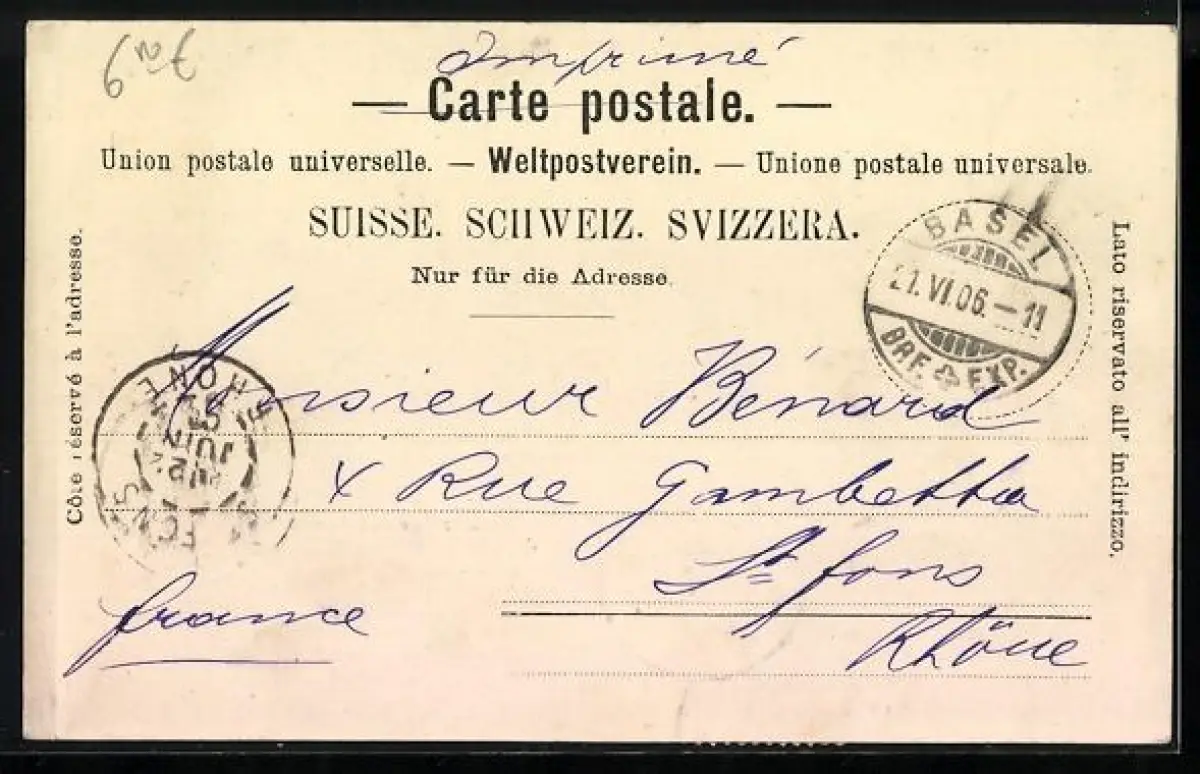 Imprimé
— Carte postale. —
Union postale universelle. — Weltpostverein. — Unione postale universale.
SUISSE. SCHWEIZ. SVIZZERA.
Nur für die Adresse.
Côté réservé à l'adresse.
Lato riservato all' indirizzo.
BASEL
21.VI.06.–11
BRF. EXP.
Monsieur Bénard
4 Rue Gambetta
St fons
Rhône
france
RHONE
JUIN